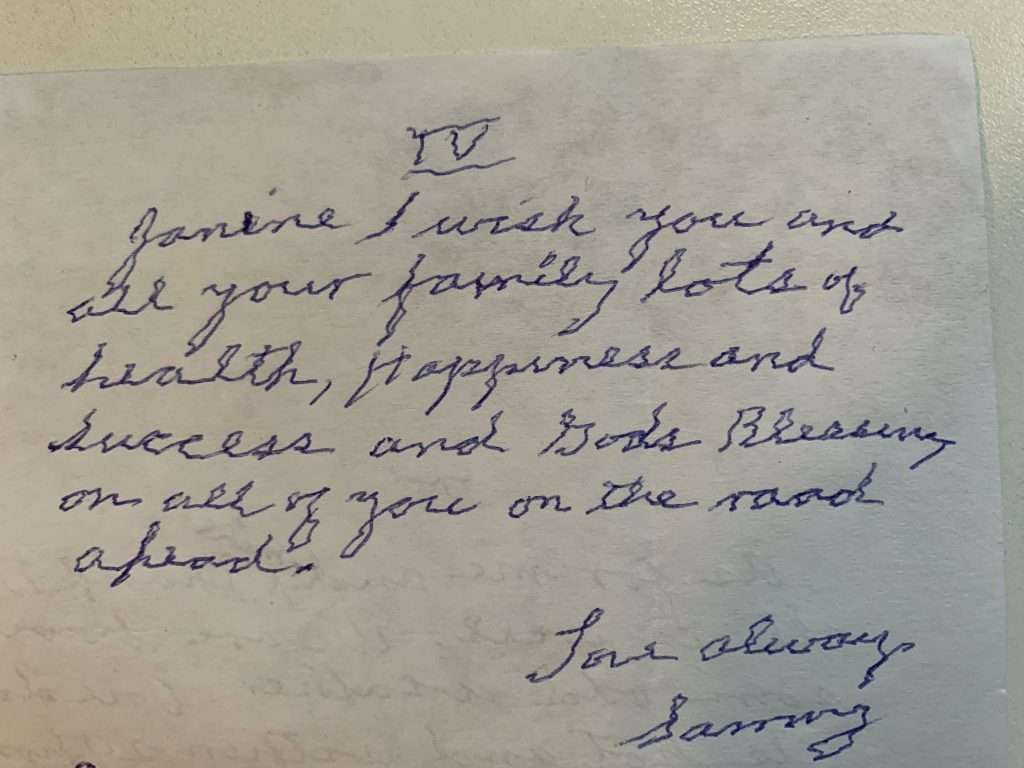 IV
Janine I wish you and
all your family lots of
health, Happiness and
success and Gods Blessing
on all of you on the road
ahead.
Love always
Sammy